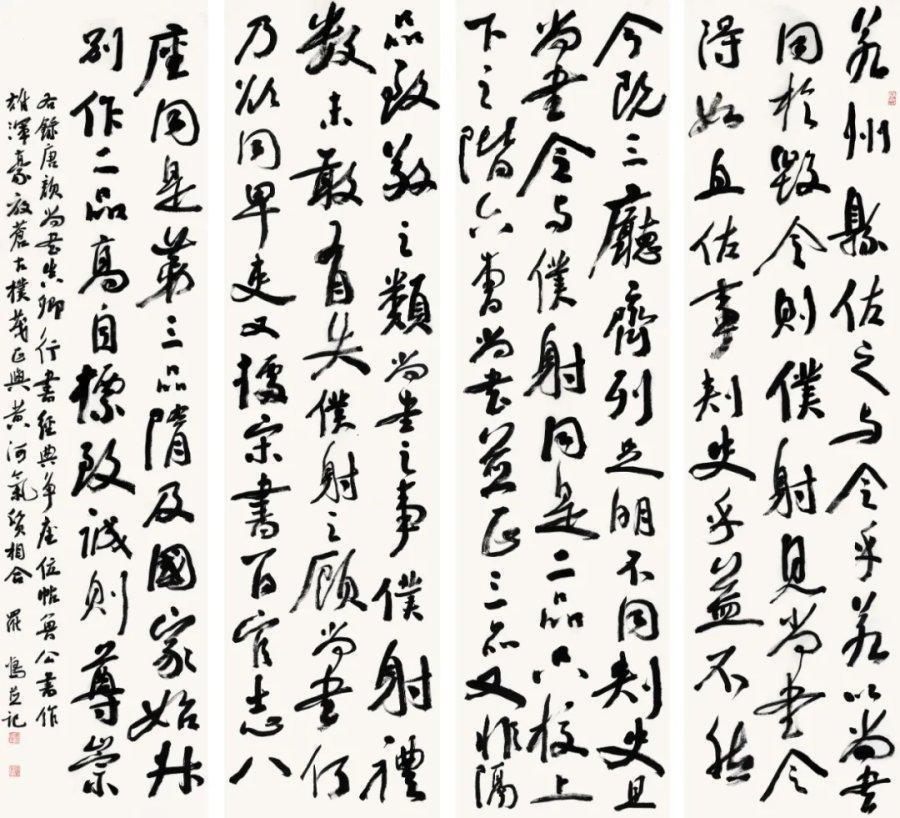 若州縣佐之与令乎若以尚書
同於縣令則僕射見尚書令
得如且佐事刺史乎益不然
今既三廳齊列足明不同刺史且
尚書令与僕射同是二品只校上
下之階六曹尚書並正三品又非隔
品致敬之類尚書之事僕射禮
數未敢有失僕射之顧尚書何
乃欲同卑吏又據宋書百官志八
座同是第三品隋及國家始升
別作二品高自標致誠則尊崇
右錄唐顏尚書真卿行書經典爭座位帖魯公書作
雄渾豪放蒼古樸茂正與黃河氣質相合 羅 記